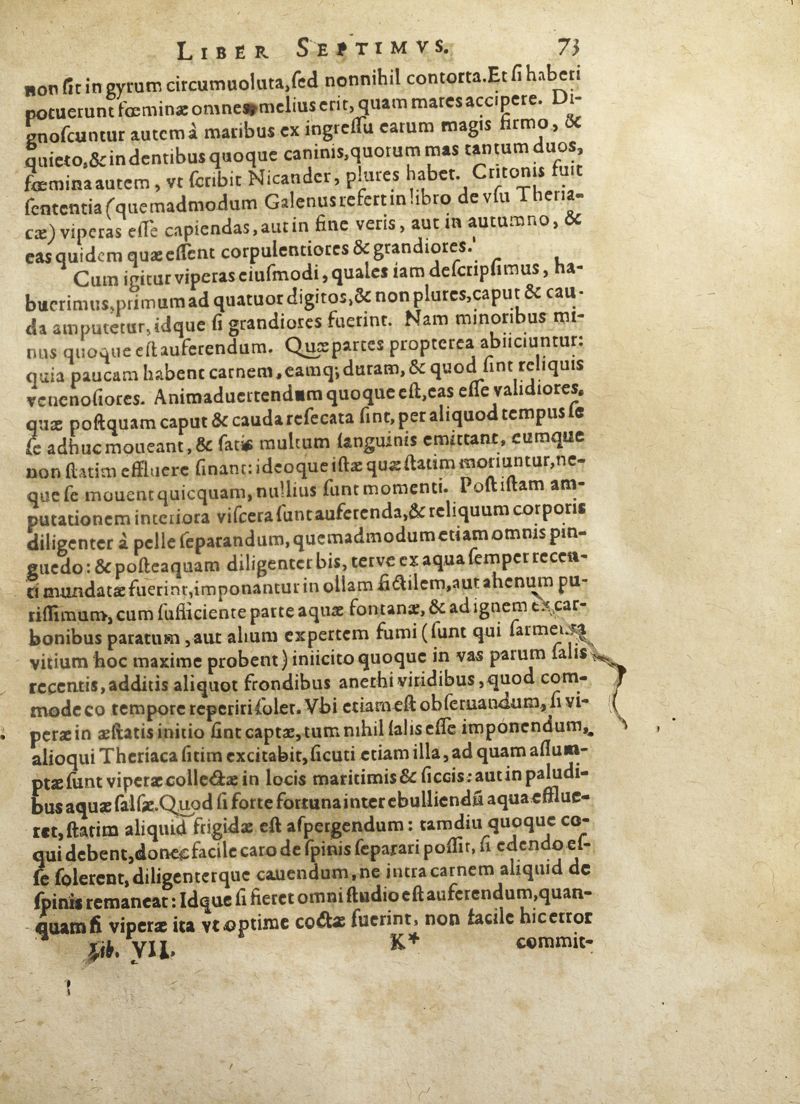 LIBER SEPTIMVS. 73
non ſit in gyrum circumuoluta, ſed nonnihil contorta. Et ſi haberi
potuerunt fœminæ omnes, melius erit, quam mares accipere. Di-
gnoſcuntur autem à maribus ex ingreſſu earum magis firmo, &
quieto, & in dentibus quoque caninis, quorum mas tantum duos,
fœmina autem, vt ſcribit Nicander, plures habet. Critonis fuit
ſententia (quemadmodum Galenus refert in libro de vſu Theria-
cæ) viperas eſſe capiendas, aut in fine veris, aut in autumno, &
eas quidem quæ eſſent corpulentiores & grandiores.
Cum igitur viperas eiuſmodi, quales iam deſcripſimus, ha-
buerimus, primum ad quatuor digitos, & non plures, caput & cau-
da amputetur, idque ſi grandiores fuerint. Nam minoribus mi-
nus quoque eſt auferendum. Quæ partes propterea abiiciuntur:
quia paucam habent carnem, eamq; duram, & quod ſint reliquis
venenoſiores. Animaduertendum quoque eſt, eas eſſe validiores,
quæ poſtquam caput & cauda reſecata ſint, per aliquod tempus ſe
ſe adhuc moueant, & ſatis multum ſanguinis emittant, eumque
non ſtatim effluere ſinant: ideoque iſtæ quæ ſtatim moriuntur, ne-
que ſe mouent quicquam, nullius ſunt momenti. Poſt iſtam am-
putationem interiora viſcera ſunt auferenda, & reliquum corporis
diligenter à pelle ſeparandum, quemadmodum etiam omnis pin-
guedo: & poſteaquam diligenter bis, terve ex aqua ſemper recen-
ti mundatæ fuerint, imponantur in ollam fictilem, aut ahenum pu-
riſſimum, cum ſufficiente parte aquæ fontanæ, & ad ignem ex car-
bonibus paratum, aut alium expertem fumi (ſunt qui
vitium hoc maxime probent) iniicito quoque in vas parum ſalis
recentis, additis aliquot frondibus anethi viridibus, quod com-
mode eo tempore reperiri ſolet. Vbi etiam eſt obſeruandum, ſi vi-
peræ in æſtatis initio ſint captæ, tum nihil ſalis eſſe imponendum,
alioqui Theriaca ſitim excitabit, ſicuti etiam illa, ad quam aſſum-
ptæ ſunt viperæ collectæ in locis maritimis & ſiccis: aut in paludi-
bus aquæ ſalſæ. Quod ſi forte fortuna inter ebulliendũ aqua efflue-
ret, ſtatim aliquid frigidæ eſt aſpergendum: tamdiu quoque co-
qui debent, donec facile caro de ſpinis ſeparari poſſit, ſi edendo eſ-
ſe ſolerent, diligenterque cauendum, ne intra carnem aliquid de
ſpinis remaneat: Idque ſi fieret omni ſtudio eſt auferendum, quan-
quam ſi viperæ ita vt optime coctæ fuerint, non facile hic error
Lib. VII. K* commit-